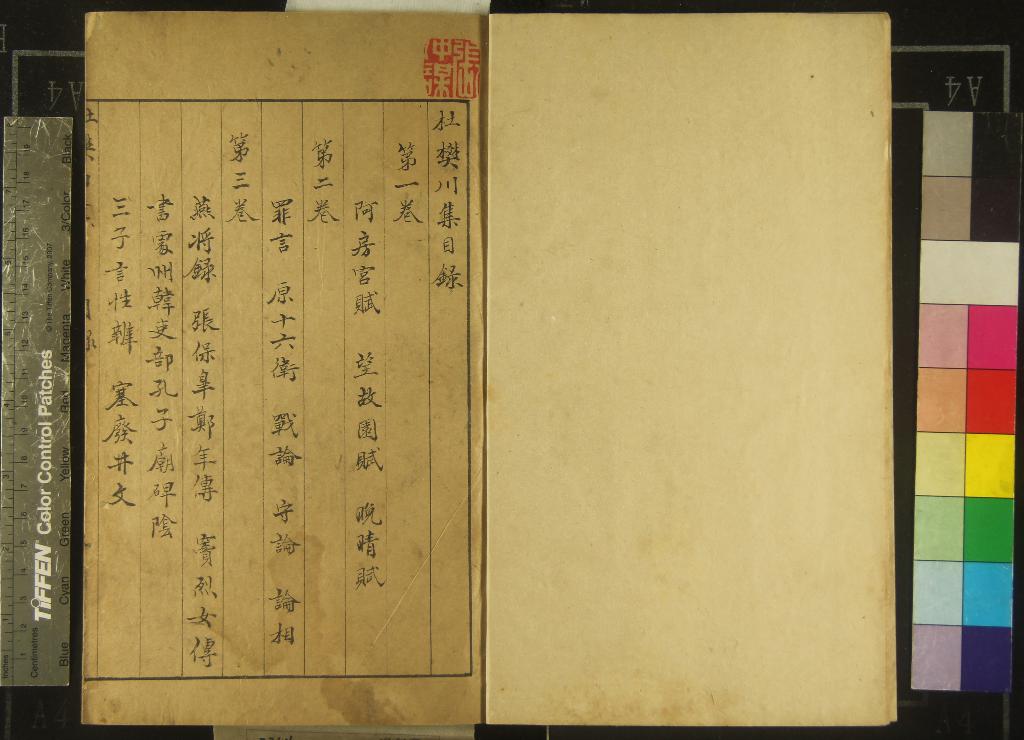 杜樊川集目録
第一卷
阿房宮賦 望故園賦 晚晴賦
第二卷
罪言 原十六衛 戰論 守論 論相
第三卷
燕将録 張保皐鄭年傳 竇烈女傳
書處州韓吏部孔子廟碑陰
三子言性辨 塞廢井文
TIFFEN Color Control Patches
© The Tiffen Company, 2007
Blue Cyan Green Yellow Red Magenta White 3/Color Black
Inches
Centimetres
A4
A4
A4
A4